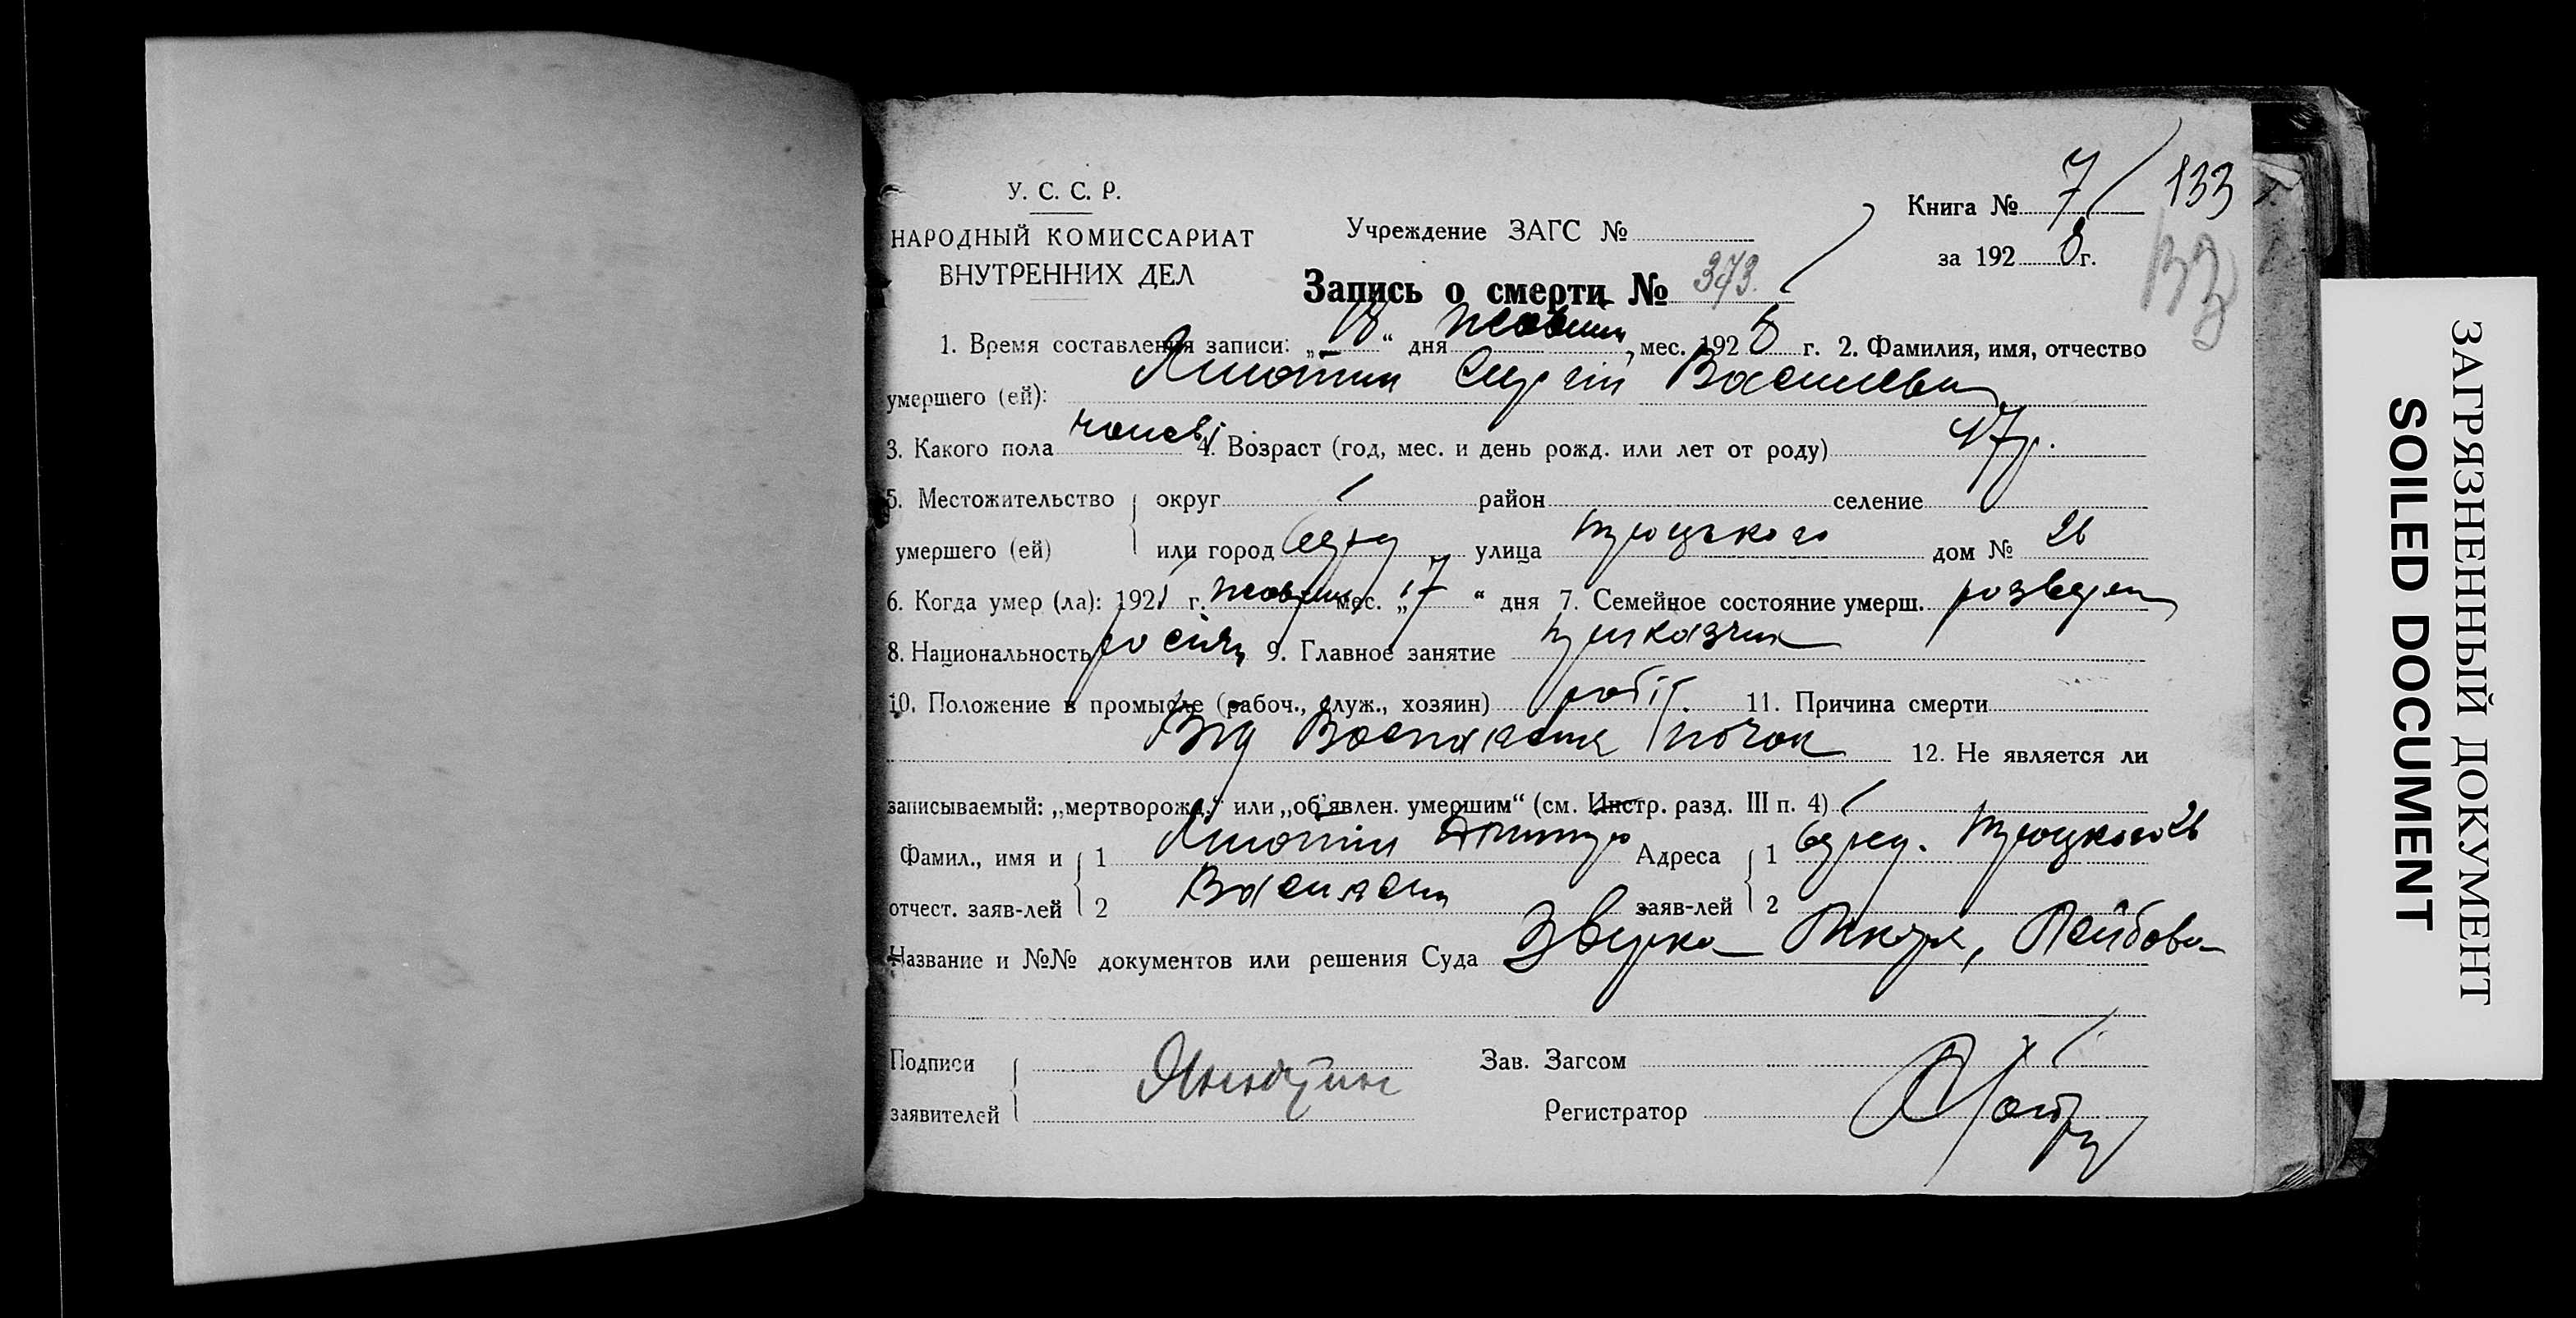 У. С. С. Р.
НАРОДНЫЙ КОМИССАРИАТ
ВНУТРЕННИХ ДЕЛ
Учреждение ЗАГС №
Книга № 7 / 133
за 1928 г.
Запись о смерти № 373.
1. Время составления записи: „18“ дня жовтня мес. 1928 г. 2. Фамилия, имя, отчество
умершего (ей): Сергій Васильев
3. Какого пола чолов. 4. Возраст (год, мес. и день рожд. или лет от роду) 47 р.
5. Местожительство округ район селение
умершего (ей) или город улица Троцького дом № 26
6. Когда умер (ла): 192 г. жовтня мес. „17“ дня 7. Семейное состояние умерш. розведен
8. Национальность росіян 9. Главное занятие приказчик
10. Положение в промысле (рабоч., служ., хозяин) робіт. 11. Причина смерти
Від Воспаления почок 12. Не является ли
записываемый: „мертворожд.“ или „об'явлен. умершим“ (см. Инстр. разд. III п. 4)
Фамил., имя и 1 Адреса 1 Троцкого 26
отчест. заяв-лей 2 заяв-лей 2
Название и №№ документов или решения Суда
Подписи
заявителей
Зав. Загсом
Регистратор
ЗАГРЯЗНЕННЫЙ ДОКУМЕНТ
SOILED DOCUMENT